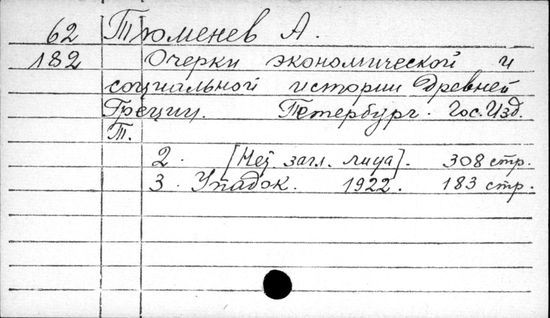 62 Тюменев А.
182 Очерки экономической и
социальной истории Древней
Греции. Петербург. Гос.Изд.
Т.
2. [Без загл. лица]. 308 стр.
3. Упадок. 1922. 183 стр.